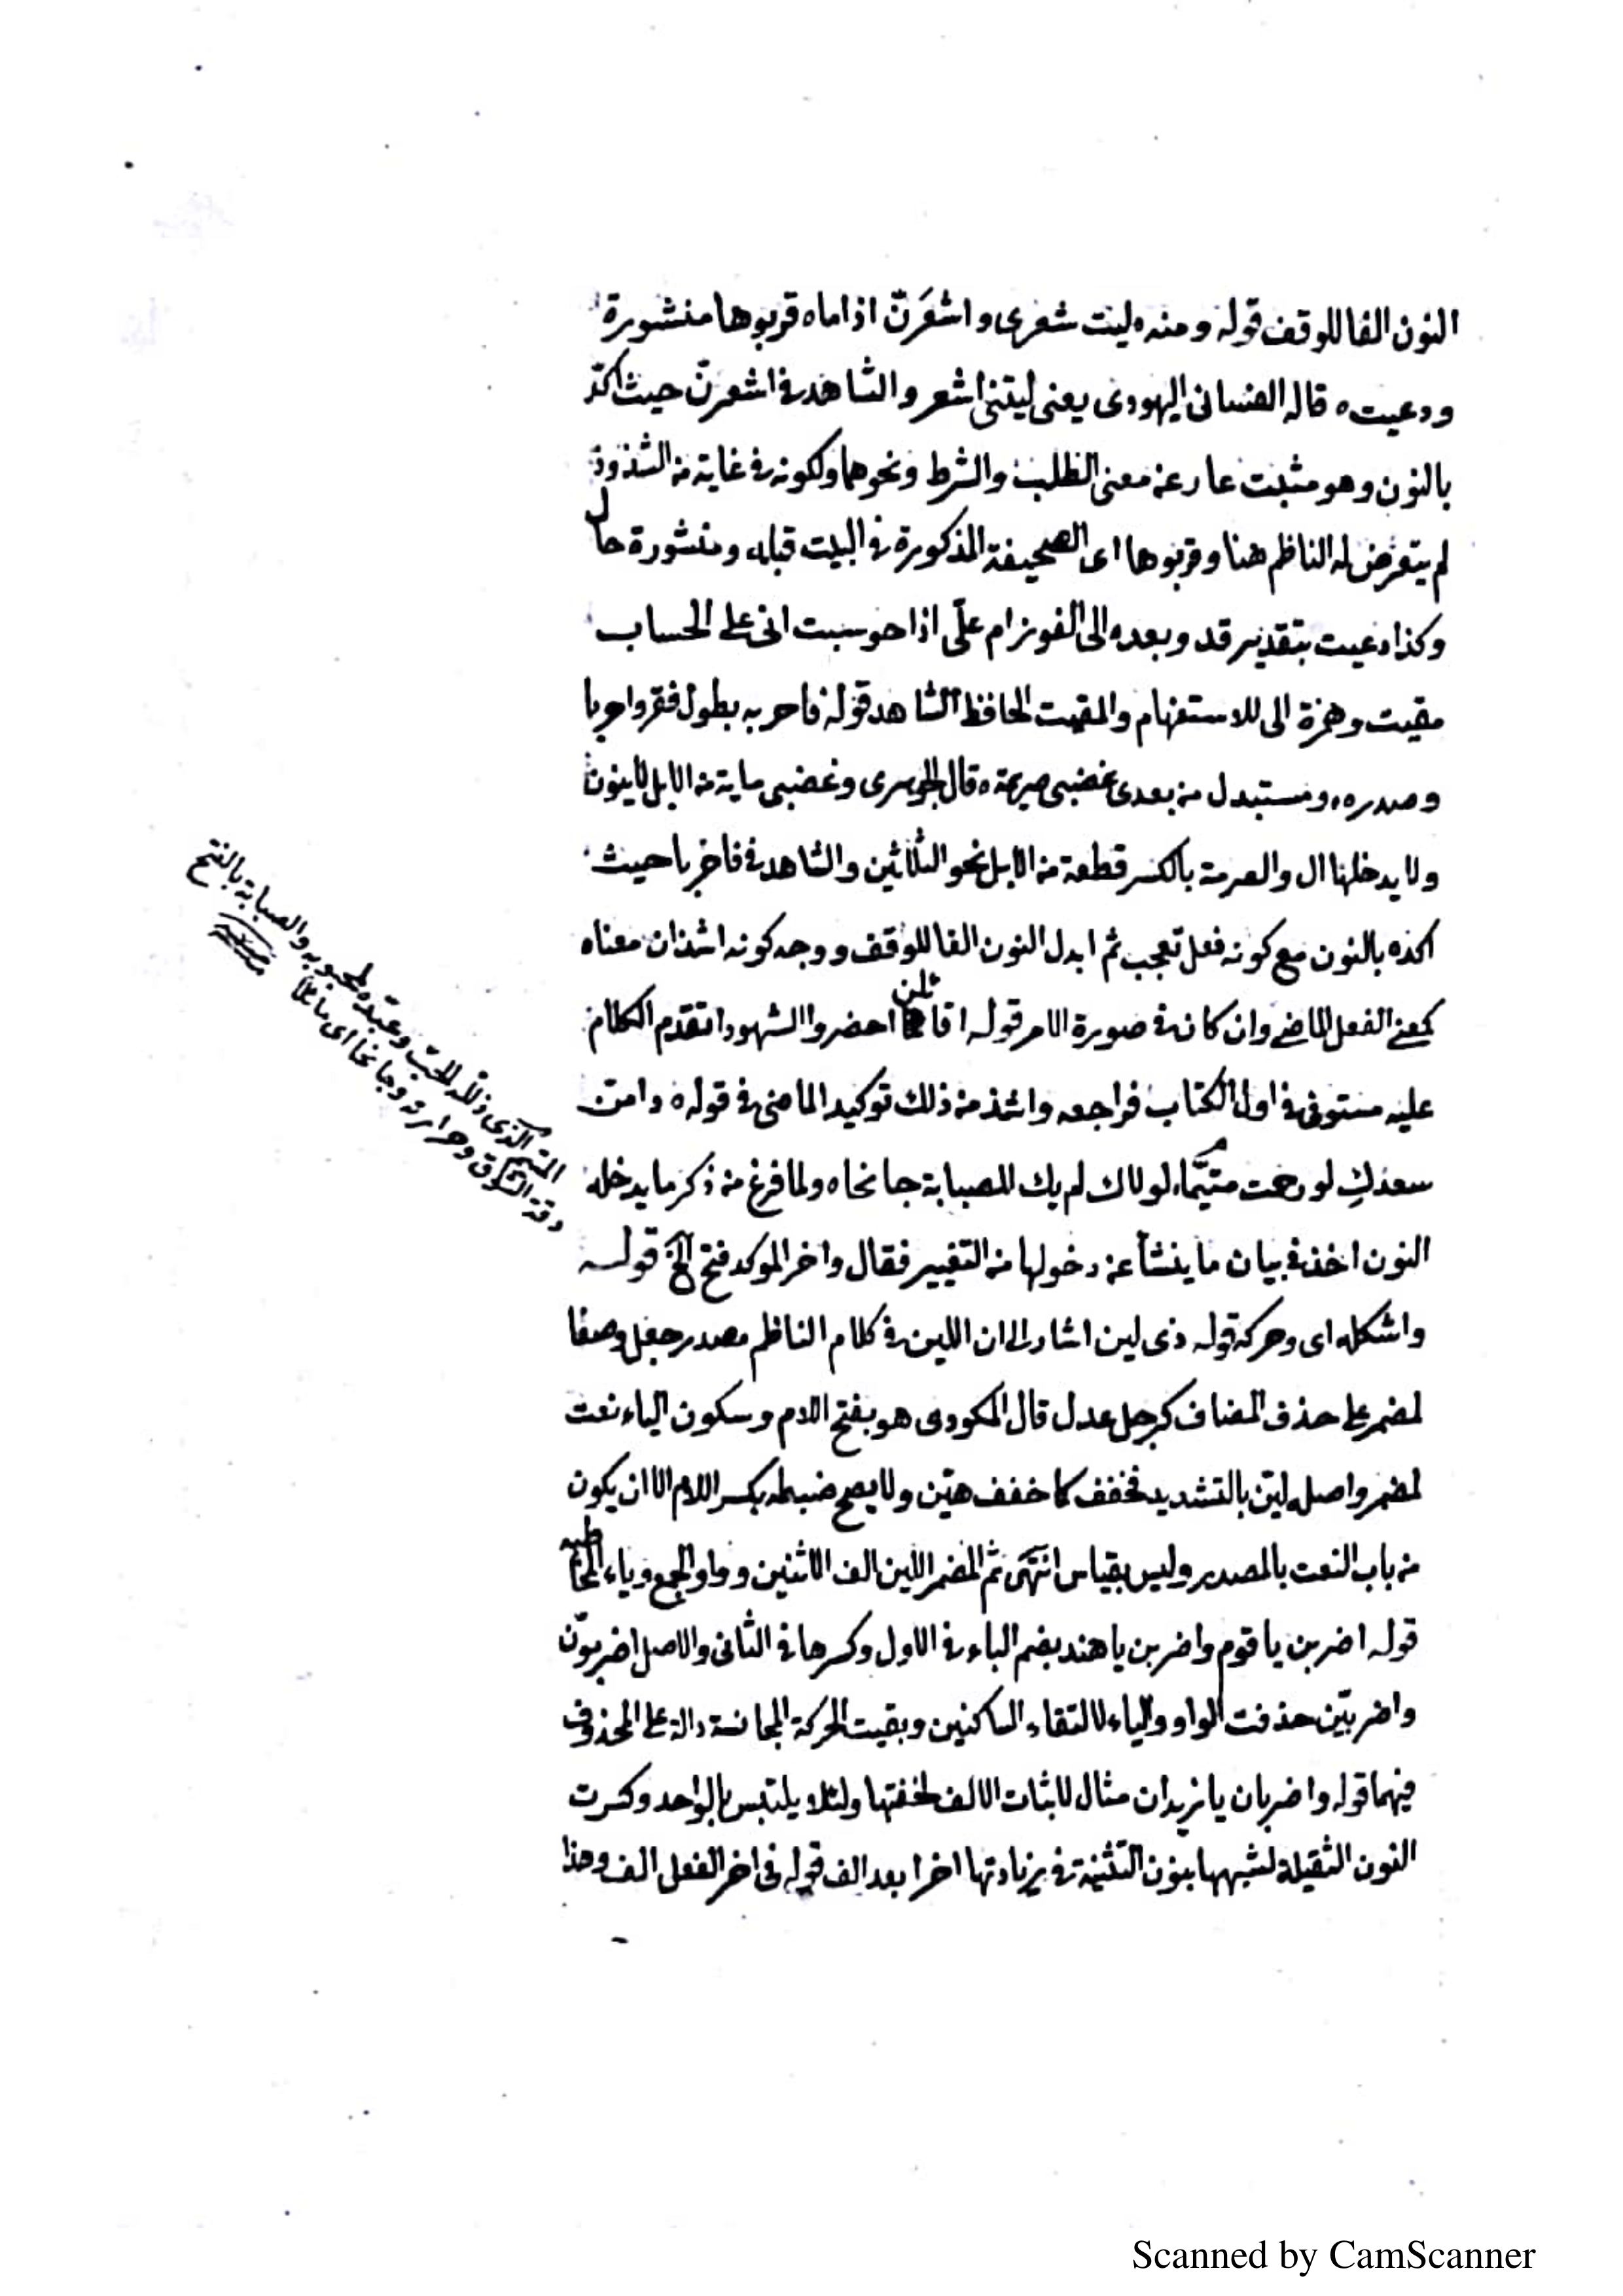 النون الفا للوقف قوله ومنه ه ليت شعرى واشعَرَنّ اذا ماه قربوها منشورة
ودعيت ه قاله الغسانى اليهودى يعنى ليتنى اشعر والشاهد فى اشعرنّ حيث اكّد
بالنون وهو مثبت عار عن معنى الطلب والشرط ونحوهما ولكونه فى غاية من الشذوذ
لم يتعرض له الناظم هنا وقربوها اى الصحيفة المذكورة فى البيت قبله ومنشورة حال
وكذا دعيت بتقدير قد وبعده الى الفوز ام علّى اذا حوسبت انى على الحساب
مقيت وهمزة الى للاستفهام والمقيت الحافظ الشاهد قوله فاحر به بطول فقر واحريا
وصدره ومستبدل من بعدى غضبى صريمة ه قال الجوهرى وغضبى ماية من الابل لاينون
ولا يدخلها ال والصرمة بالكسر قطعة من الابل نحو الثلاثين والشاهد فى فاخريا حيث
اكده بالنون مع كونه فعل تعجب ثم ابدل النون الفا للوقف ووجه كونه اشذ ان معناه
كمعنى الفعل الماضى وان كان فى صورة الامر قوله اقائلن احضروا الشهودا تقدم الكلام
عليه مستوفى فى اول الكتاب فراجعه واشذ من ذلك توكيد الماضى فى قوله ه دامنّ
سعدكِ لو رحمت متيّما، لولاك لم يك للصبابة جانحاه ولما فرغ من ذكر ما يدخله
النون اخذ فى بيان ما ينشأ عن دخولها من التغيير فقال واخر الموكد فتح الخ قوله
واشكله اى وحركه قوله ذى لين اشار الى ان اللين فى كلام الناظم مصدر جعل وصفا
لمضمر على حذف المضاف كرجل عدل قال المكودى هو بفتح اللام وسكون الياء نعت
لمضمر واصله ليّن بالتشديد فخفف كما خفف هيّن ولا يصح ضبطه بكسر اللام الا ان يكون
من باب النعت بالمصدر وليس بقياس انتهى ثم المضمر اللين الف الاثنين وواو الجمع وياء المخاطبه
قوله اضربن يا قوم واضربن يا هند بضم الباء فى الاول وكسرها فى الثانى والاصل اضربونّ
واضربيّن حذفت الواو والياء لالتقاء الساكنين وبقيت الحركة المجانسة دالة على المحذوف
فيهما قوله واضربان يا زيدان مثال لاثبات الالف لخفتها ولئلا يلتبس بالواحد وكسرت
النون الثقيلة لشبهها بنون التثنية فى زيادتها اخرا بعد الف قوله فى اخر الفعل الف وهذا
المتيم الذى ذلّله الحبّ وعبّده لمحبوبه والصبابة بالفتح
رقة الشوق وحرارته وجانحا اى مائلا
Scanned by CamScanner